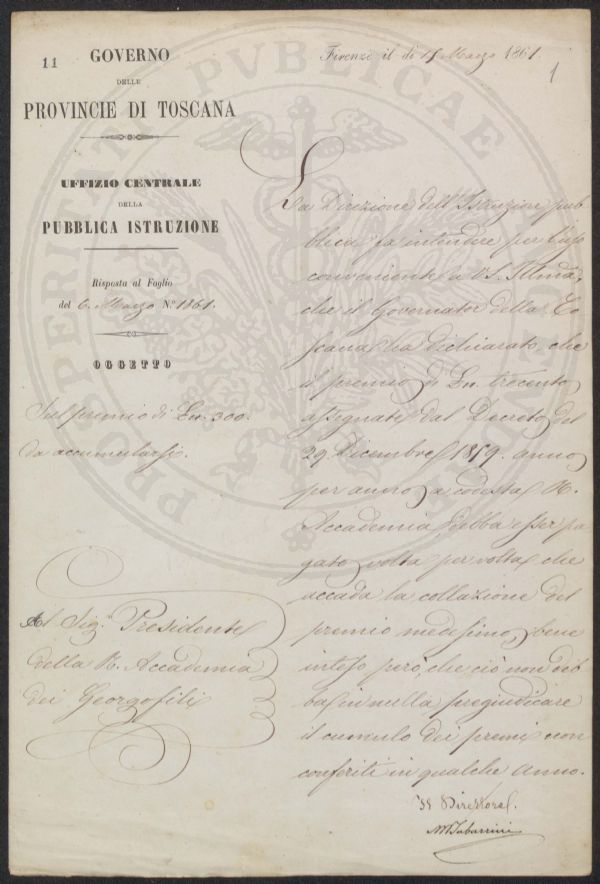 11
GOVERNO
DELLE
PROVINCIE DI TOSCANA
UFFIZIO CENTRALE
DELLA
PUBBLICA ISTRUZIONE
Risposta al Foglio
del 6. Marzo N.º 1861.
OGGETTO
Sul premio di Ln. 300.
da accumularsi.
Al Sig.r Presidente
della R. Accademia
dei Georgofili
Firenze il dì Marzo 1861.
1
La Direzione dell'Istruzione pub
blica fa intendere per l'uso
conveniente a V.S. Illma,
che il Governator della To
scana ha dichiarato che
il premio di Ln. trecento
assegnato dal Decreto del
29. Dicembre 1859. anno
per anno a codesta R.
Accademia debba esser pa
gato volta per volta che
accada la collazione del
premio medesimo, bene
inteso però, che ciò non deb
ba in nulla pregiudicare
il cumulo dei premi non
conferiti in qualche anno.
Il Direttore.
MTabarrini
PROSPERITATI PVBLICAE